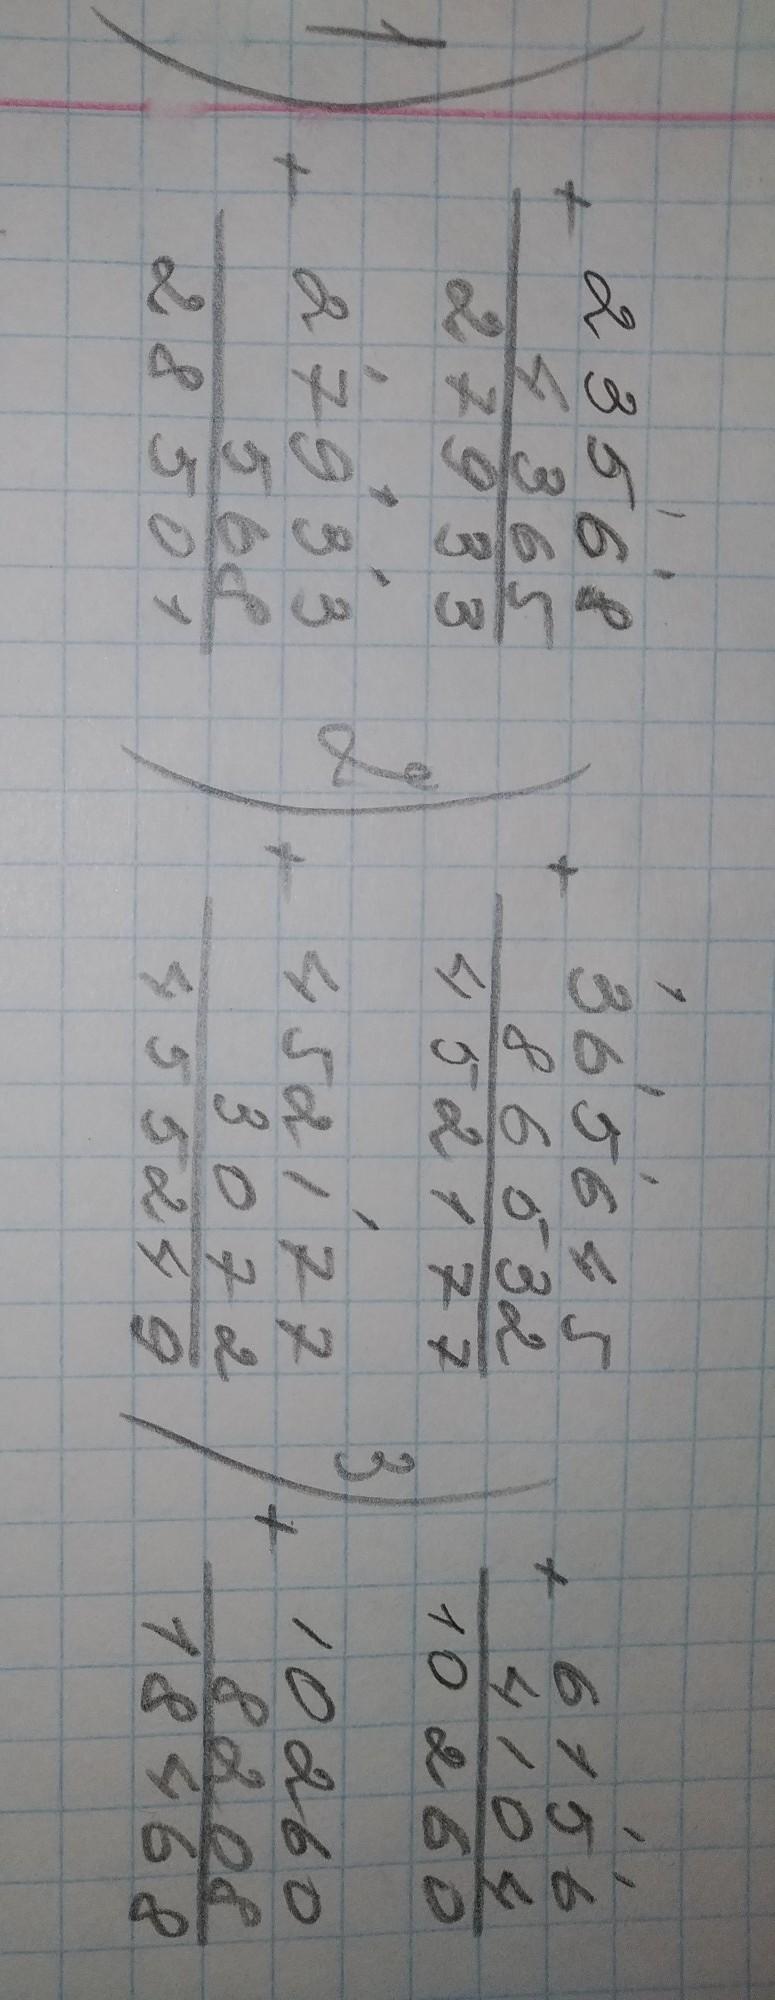 1)
+ 23568
4365
27933
+ 27933
568
28501
2)
+ 365645
86532
452177
+ 452177
3072
455249
3)
+ 6156
4104
10260
+ 10260
8208
18468